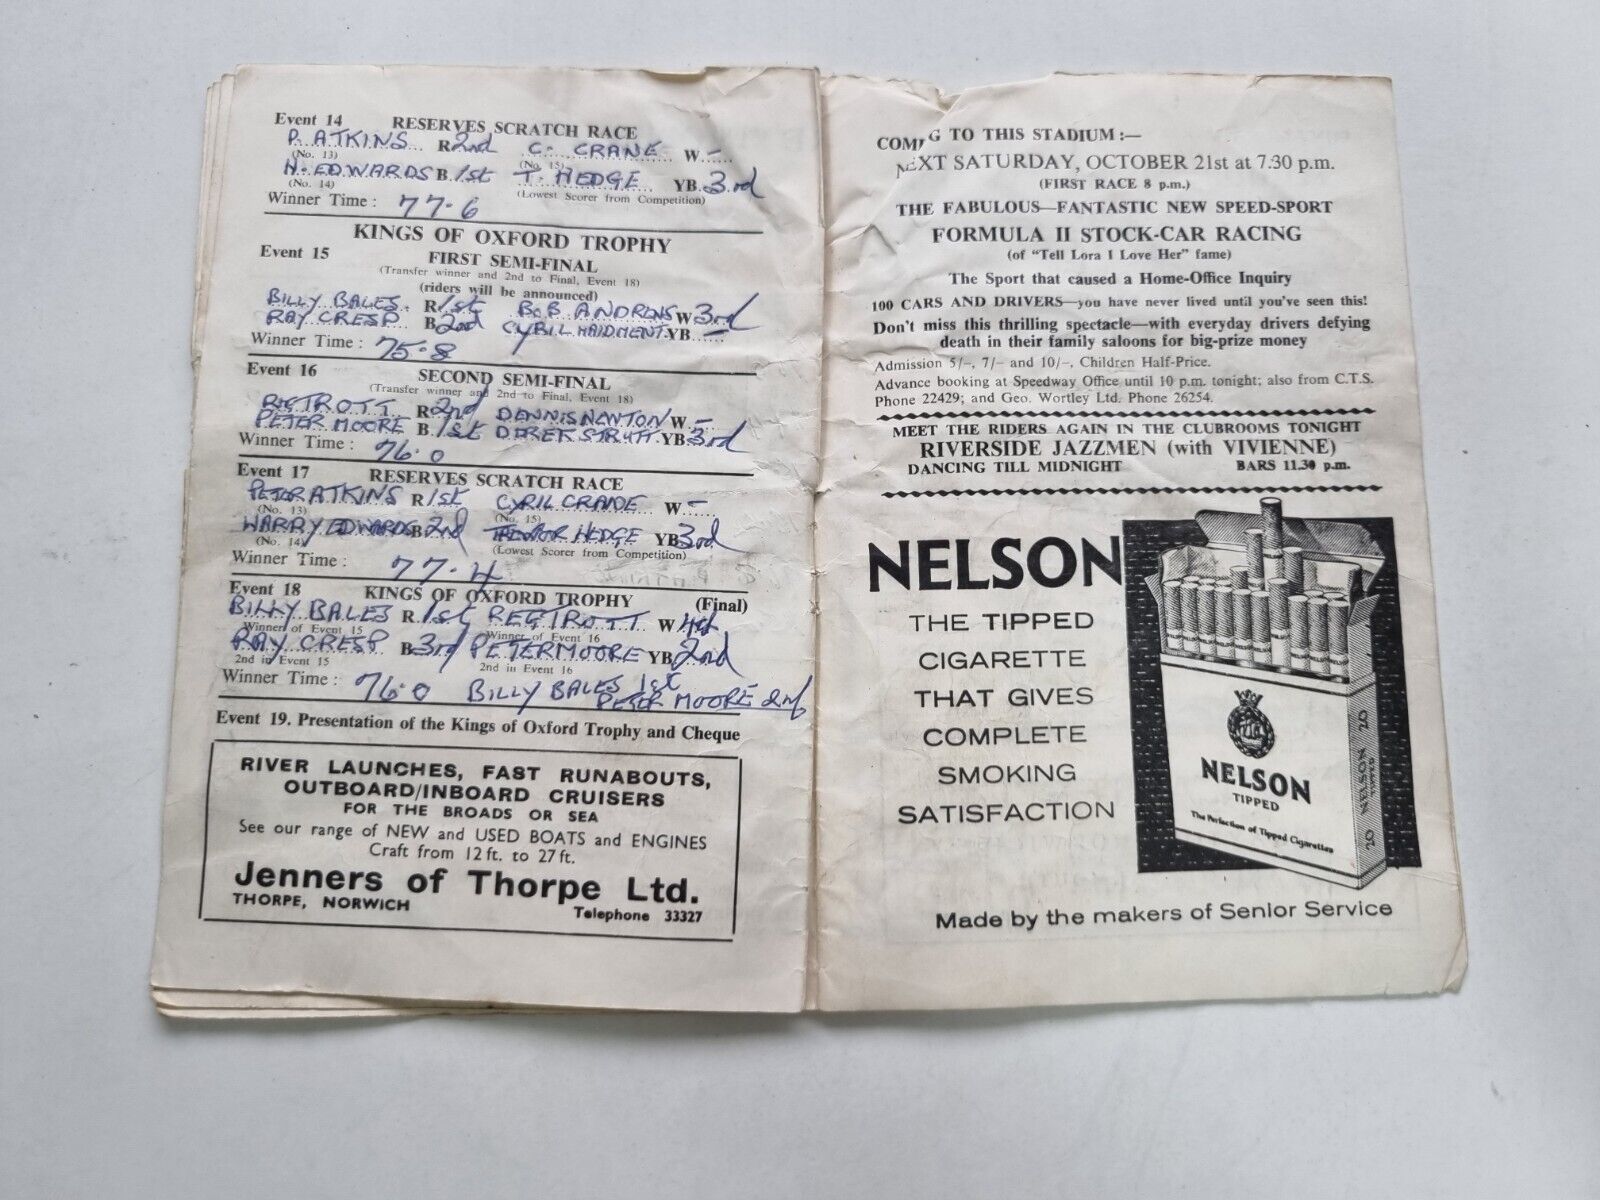 Event 14 RESERVES SCRATCH RACE
P. ATKINS R 2nd C. CRANE W –
(No. 13) (No. 15)
H. EDWARDS B 1st T. HEDGE YB 3rd
(No. 14) (Lowest Scorer from Competition)
Winner Time : 77.6
KINGS OF OXFORD TROPHY
Event 15 FIRST SEMI-FINAL
(Transfer winner and 2nd to Final, Event 18)
(riders will be announced)
BILLY BALES R 1st BOB ANDREWS W 3rd
RAY CRESP B 2nd CYRIL MAIDMENT YB –
Winner Time : 75.8
Event 16 SECOND SEMI-FINAL
(Transfer winner and 2nd to Final, Event 18)
REG TROTT R 2nd DENNIS NEWTON W –
PETER MOORE B 1st DEREK STRUTT YB 3rd
Winner Time : 76.0
Event 17 RESERVES SCRATCH RACE
PETER ATKINS R 1st CYRIL CRANE W –
(No. 13) (No. 15)
HARRY EDWARDS B 2nd TREVOR HEDGE YB 3rd
(No. 14) (Lowest Scorer from Competition)
Winner Time : 77.4
Event 18 KINGS OF OXFORD TROPHY (Final)
BILLY BALES R 1st REG TROTT W 4th
Winner of Event 15 Winner of Event 16
RAY CRESP B 3rd PETER MOORE YB 2nd
2nd in Event 15 2nd in Event 16
Winner Time : 76.0 BILLY BALES 1st
PETER MOORE 2nd
Event 19. Presentation of the Kings of Oxford Trophy and Cheque
RIVER LAUNCHES, FAST RUNABOUTS,
OUTBOARD/INBOARD CRUISERS
FOR THE BROADS OR SEA
See our range of NEW and USED BOATS and ENGINES
Craft from 12 ft. to 27 ft.
Jenners of Thorpe Ltd.
THORPE, NORWICH Telephone 33327
COMING TO THIS STADIUM :—
NEXT SATURDAY, OCTOBER 21st at 7.30 p.m.
(FIRST RACE 8 p.m.)
THE FABULOUS—FANTASTIC NEW SPEED-SPORT
FORMULA II STOCK-CAR RACING
(of "Tell Lora I Love Her" fame)
The Sport that caused a Home-Office Inquiry
100 CARS AND DRIVERS—you have never lived until you've seen this!
Don't miss this thrilling spectacle—with everyday drivers defying
death in their family saloons for big-prize money
Admission 5/-, 7/- and 10/-, Children Half-Price.
Advance booking at Speedway Office until 10 p.m. tonight; also from C.T.S.
Phone 22429; and Geo. Wortley Ltd. Phone 26254.
MEET THE RIDERS AGAIN IN THE CLUBROOMS TONIGHT
RIVERSIDE JAZZMEN (with VIVIENNE)
DANCING TILL MIDNIGHT BARS 11.30 p.m.
NELSON
THE TIPPED
CIGARETTE
THAT GIVES
COMPLETE
SMOKING
SATISFACTION
NELSON
TIPPED
The Perfection of Tipped Cigarettes
20 NELSON TIPPED 20
Made by the makers of Senior Service